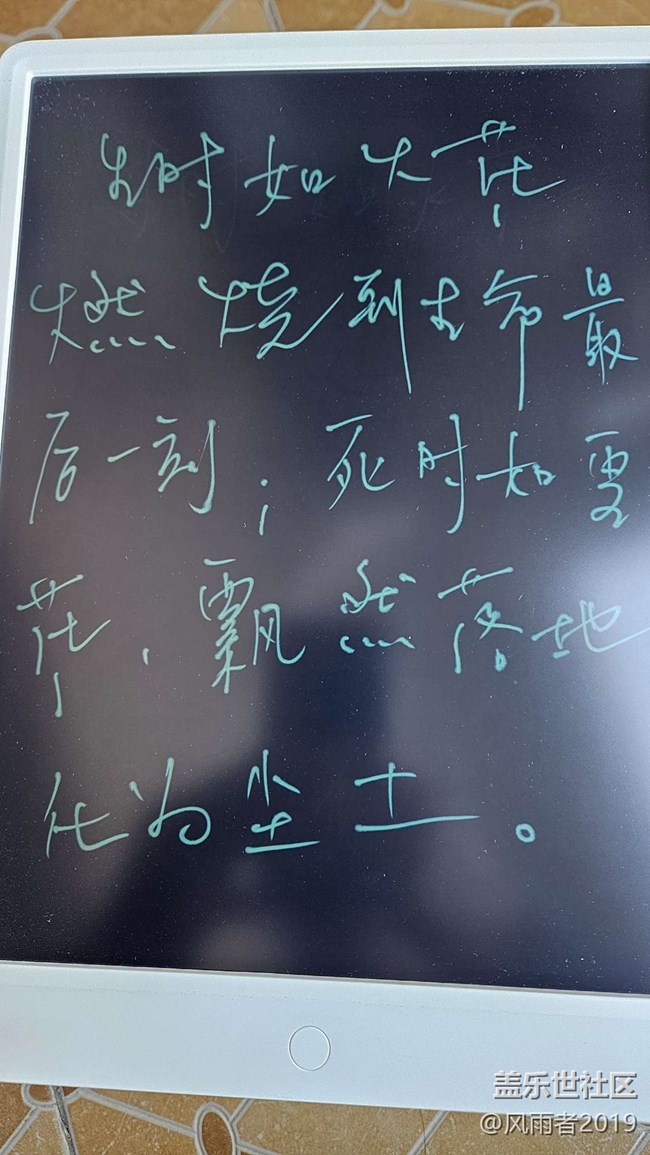 生时如火花
燃烧到生命最
后一刻；死时如雪
花，飘然落地
化为尘土。
盖乐世社区
@风雨者2019